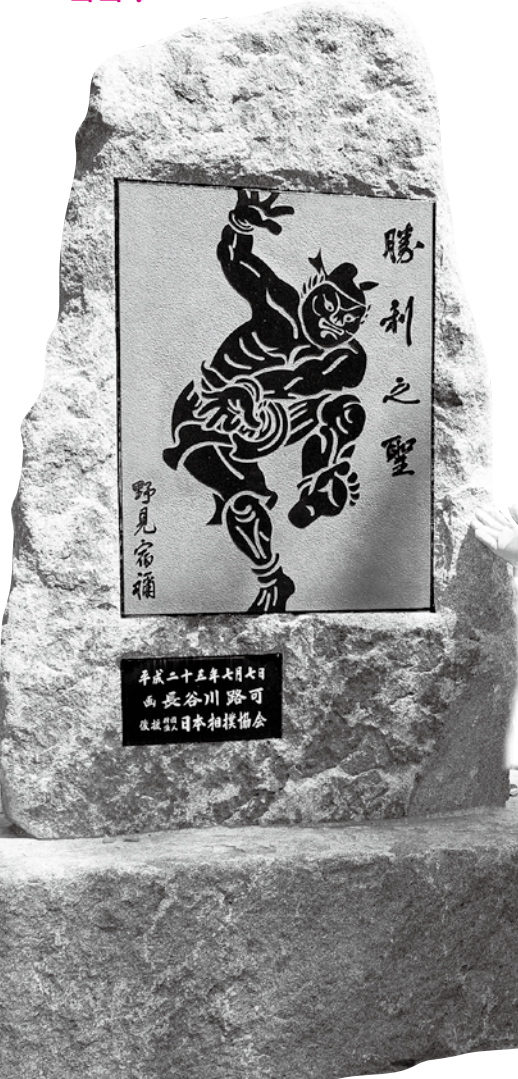 勝利之聖
野見宿禰
平成二十五年七月七日
画 長谷川路可
後援 財団法人 日本相撲協会